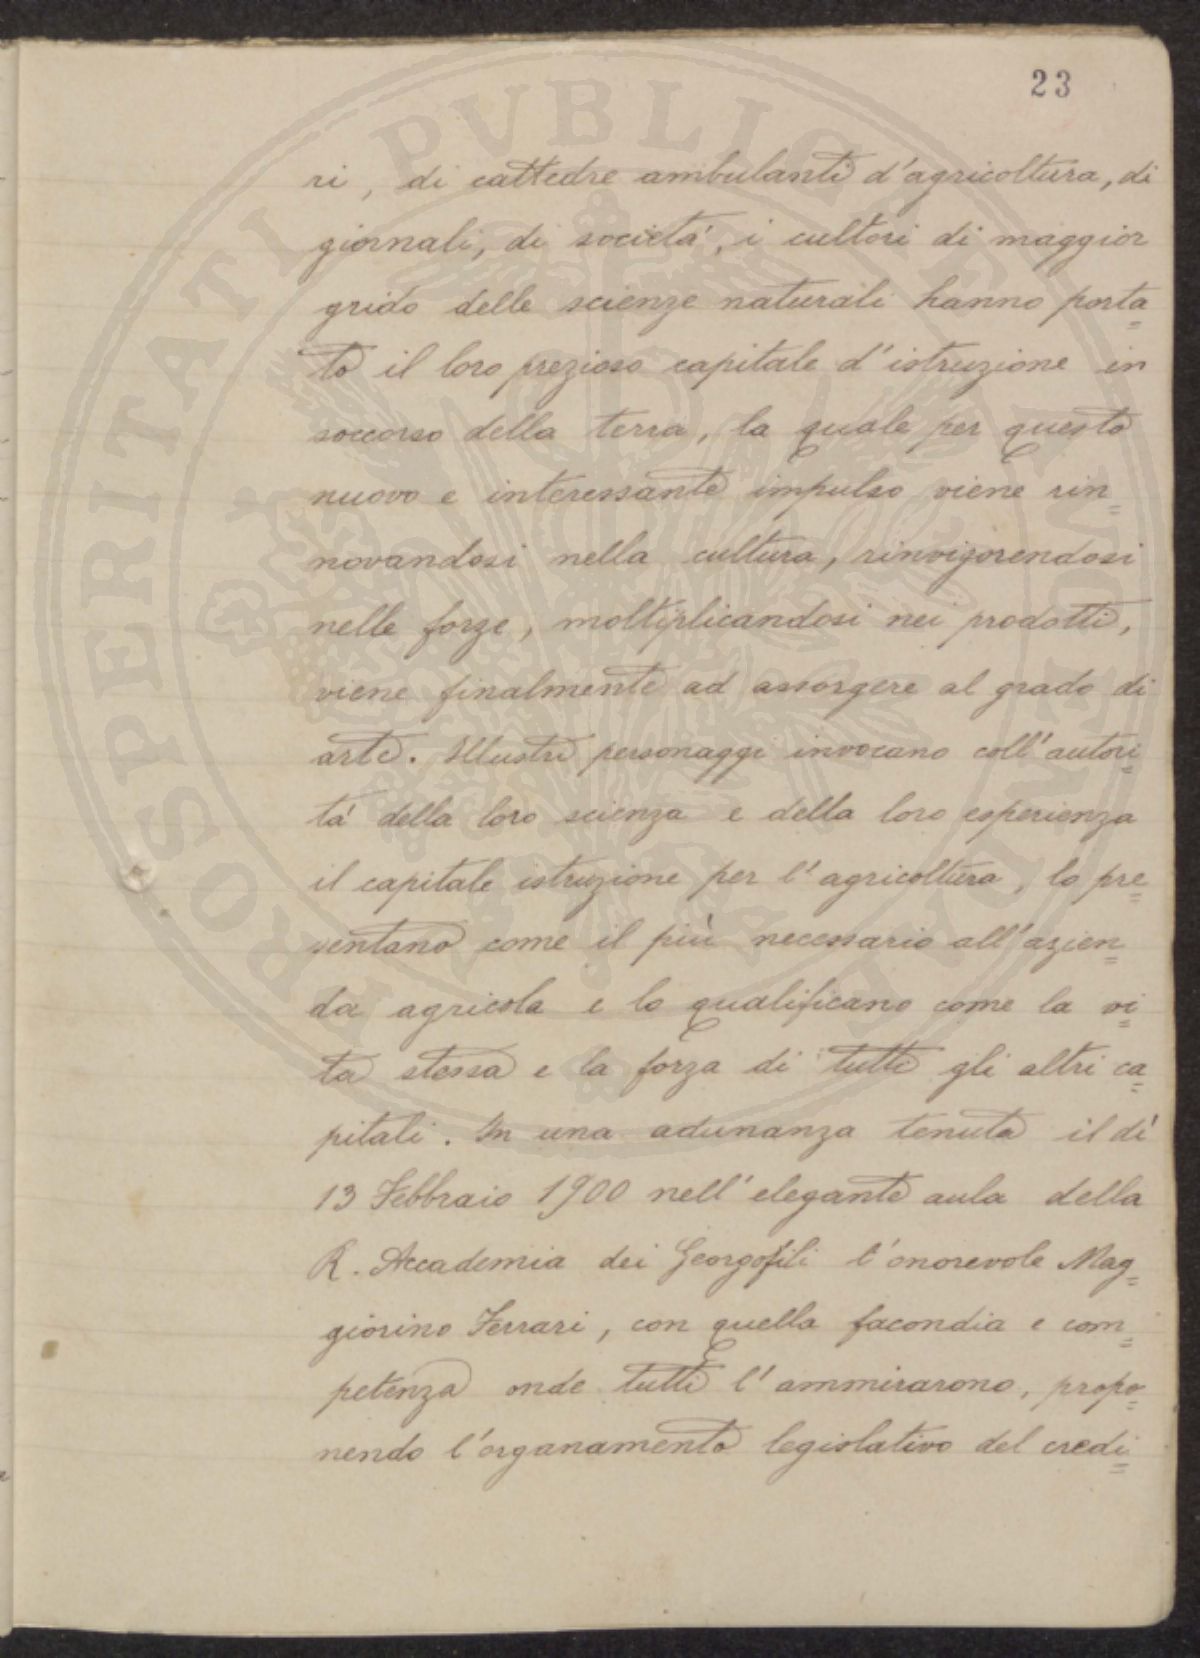 23
ri, di cattedre ambulanti d'agricoltura, di
giornali, di società, i cultori di maggior
grido delle scienze naturali hanno porta=
to il loro prezioso capitale d'istruzione in
soccorso della terra, la quale per questo
nuovo e interessante impulso viene rin=
novandosi nella cultura, rinvigorendosi
nelle forze, moltiplicandosi nei prodotti,
viene finalmente ad assorgere al grado di
arte. Illustri personaggi invocano coll'autori=
tà della loro scienza e della loro esperienza
il capitale istruzione per l'agricoltura, lo pre=
sentano come il più necessario all'azien=
da agricola e lo qualificano come la vi=
ta stessa e la forza di tutti gli altri ca=
pitali. In una adunanza tenuta il dì
13 Febbraio 1900 nell'elegante aula della
R. Accademia dei Georgofili l'onorevole Mag=
giorino Ferrari, con quella facondia e com=
petenza onde tutti l'ammirarono, propo=
nendo l'organamento legislativo del credi=
PROSPERITATI PUBLICAE AUGENDAE